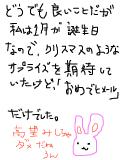 どうでも良いことだが
私は1月が誕生日
なので、クリスマスのような
サプライズを期待して
いたけど!おめでとメール
だけでした。
高望みしちゃ
ダメだね
うん